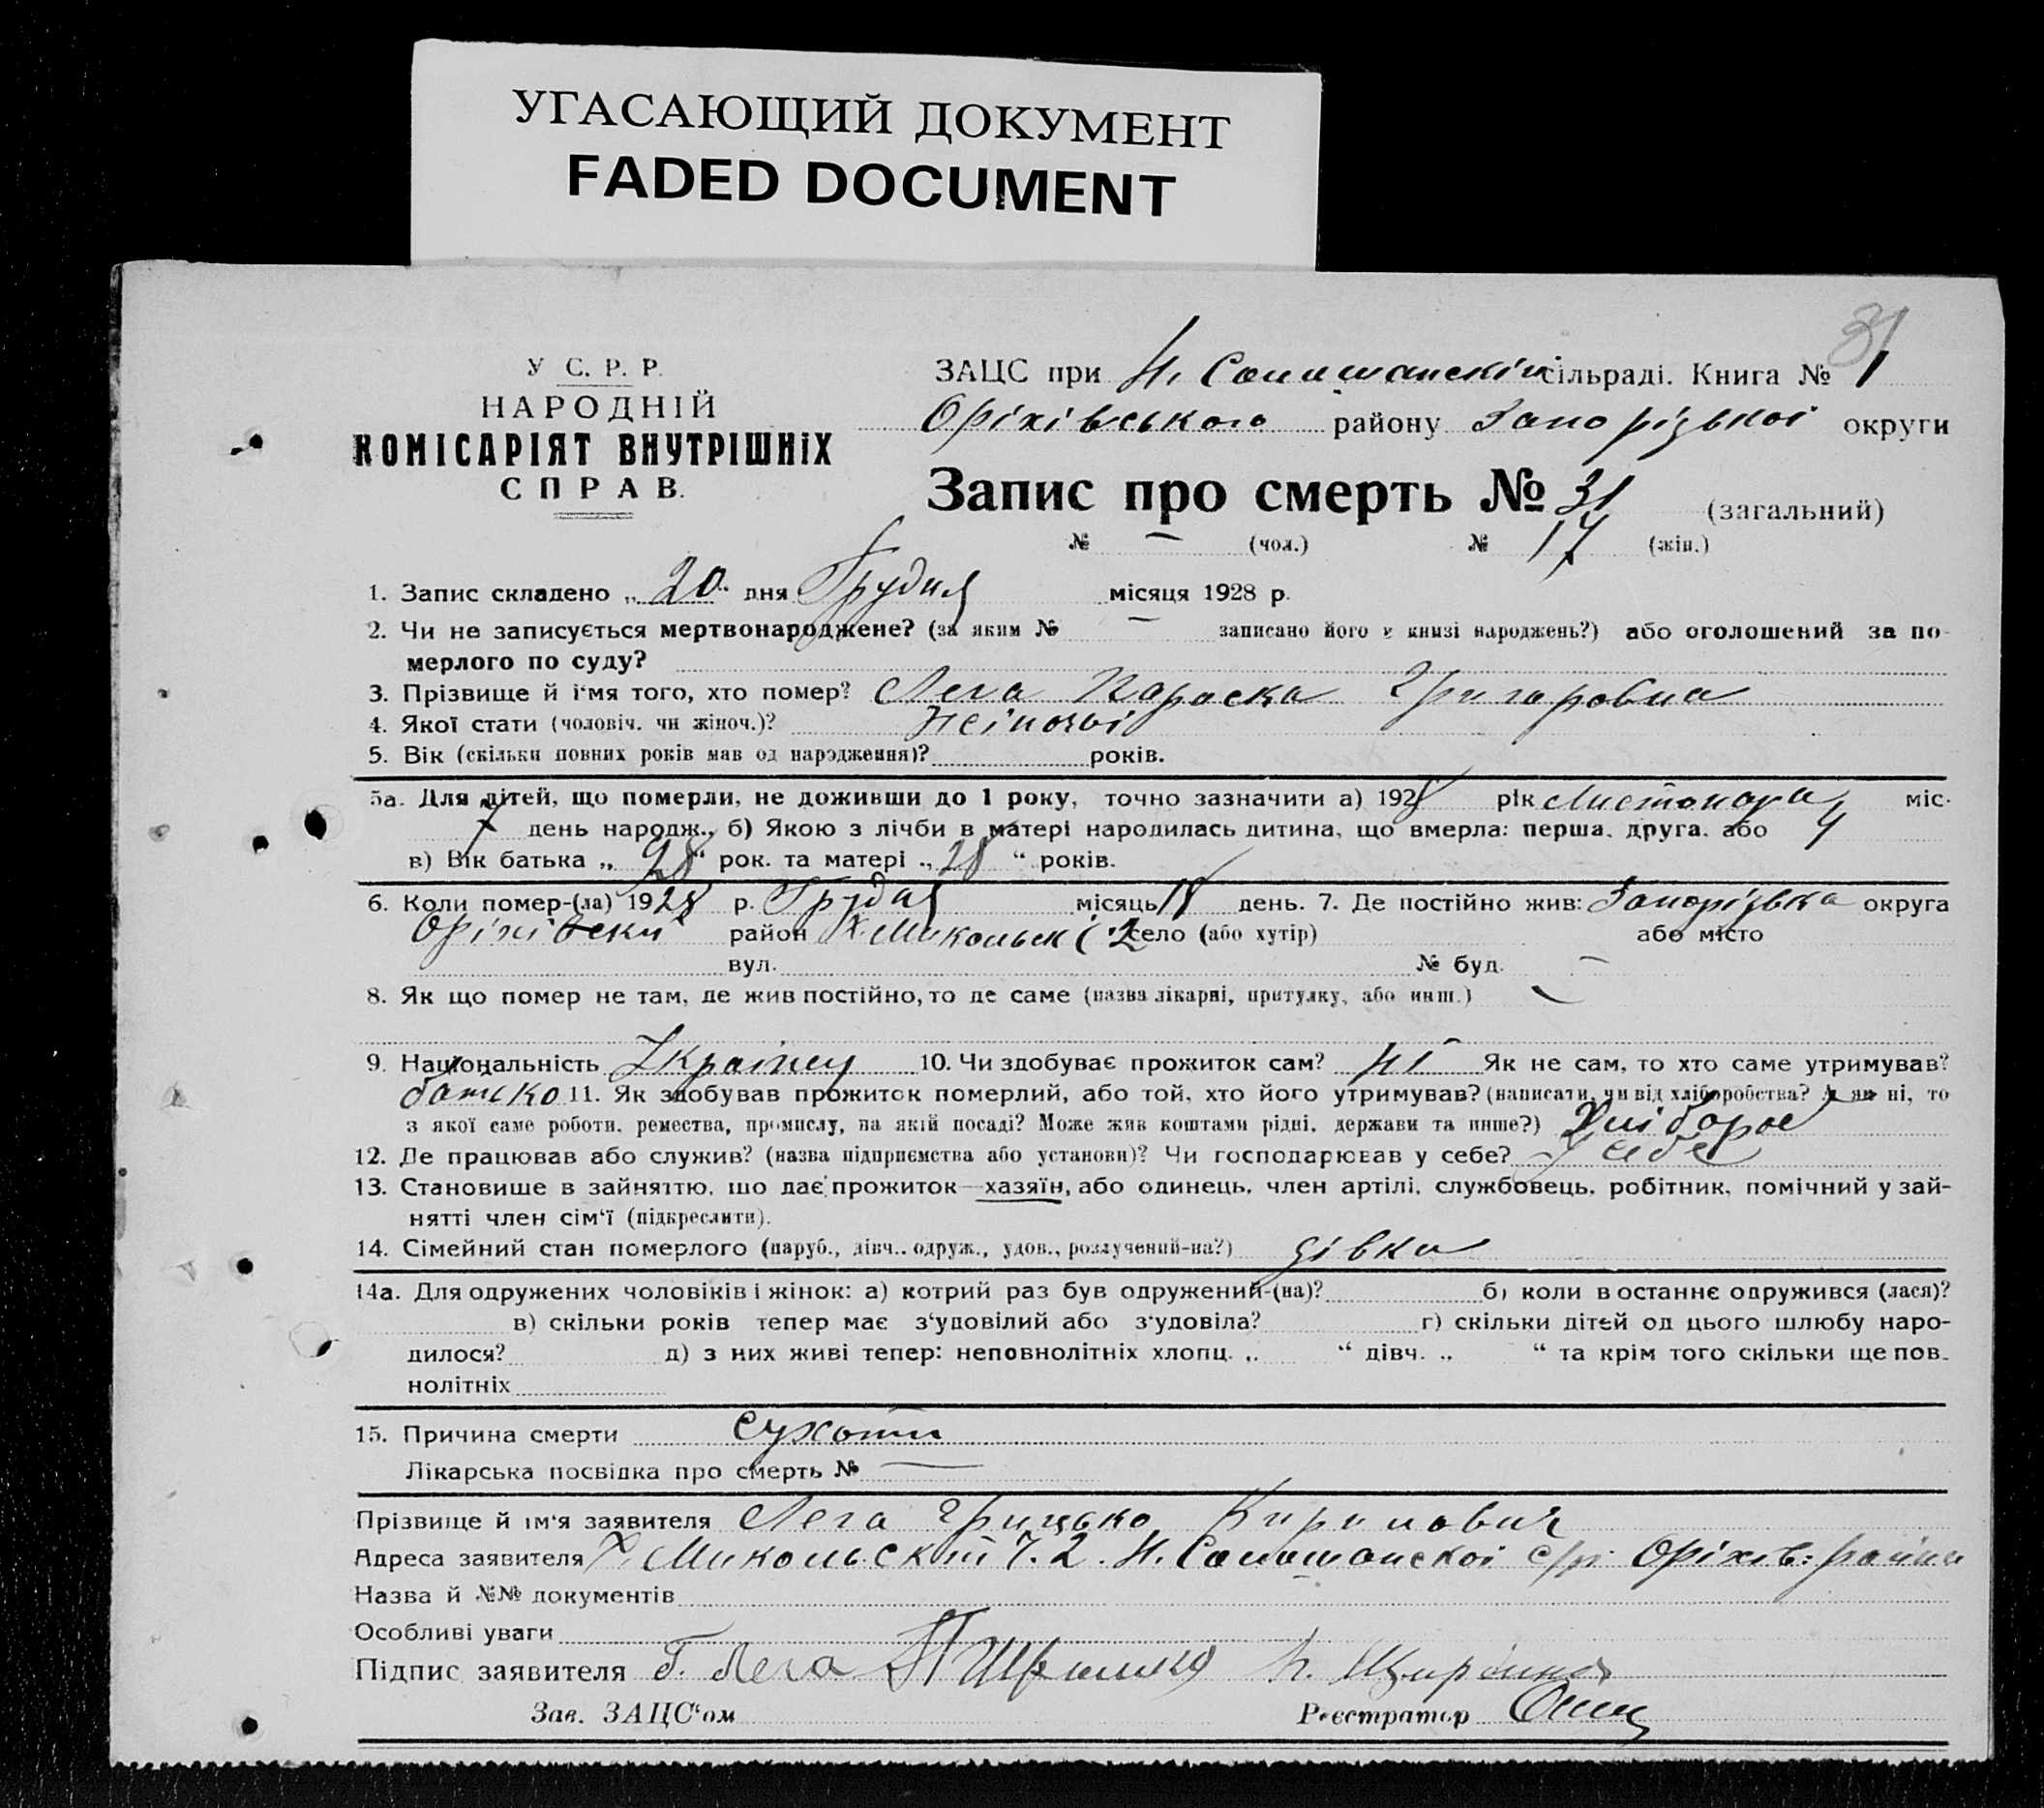 УГАСАЮЩИЙ ДОКУМЕНТ
FADED DOCUMENT
31
У С. Р. Р.
НАРОДНІЙ
КОМІСАРІЯТ ВНУТРІШНІХ
СПРАВ.
ЗАЦС при Н. Солошанскій сільраді. Книга № 1
Оріхівського району Запорізької округи
Запис про смерть № 31 (загальний)
№ — (чол.) № 17 (жін.)
1. Запис складено „ 20 " дня Грудня місяця 1928 р.
2. Чи не записується мертвонароджене? (за яким № — записано його в книзі народжень?) або оголошений за по-
мерлого по суду?
3. Прізвище й і'мя того, хто помер? Лега Параска Григоровна
4. Якої стати (чоловіч. чи жіноч.)? жіночої
5. Вік (скільки повних років мав од народження)? років.
5а. Для дітей, що померли, не доживши до 1 року, точно зазначити а) 1928 рік Листопада міс.
7 день народж., б) Якою з лічби в матері народилась дитина, що вмерла: перша, друга, або 4
в) Вік батька „ 28 " рок. та матері „ 28 " років.
6. Коли помер-(ла) 1928 р. Грудня місяць 18 день. 7. Де постійно жив: Запорізька округа
Оріхівський район Х. Микольск і 2 село (або хутір) або місто
вул. № буд. —
8. Як що помер не там, де жив постійно, то де саме (назва лікарні, притулку, або инш.) —
9. Національність Українец 10. Чи здобуває прожиток сам? ні Як не сам, то хто саме утримував?
батько 11. Як здобував прожиток померлий, або той, хто його утримував? (написати, чи від хліборобства? А як ні, то
з якої саме роботи, ремества, промислу, на якій посаді? Може жив коштами рідні, держави та инше?) Хлібороб
12. Де працював або служив? (назва підприємства або установи)? Чи господарював у себе? У себе
13. Становище в зайняттю, що дає прожиток—хазяїн, або одинець, член артілі, службовець, робітник, помічний у зай-
нятті член сім'ї (підкреслити).
14. Сімейний стан померлого (паруб., дівч., одруж., удов., розлучений-на?) дівка
14а. Для одружених чоловіків і жінок: а) котрий раз був одружений-(на)? б) коли востаннє одружився (лася)?
в) скільки років тепер має з'удовілий або з'удовіла? г) скільки дітей од цього шлюбу наро-
дилося? д) з них живі тепер: неповнолітніх хлопц. „ " дівч. „ " та крім того скільки ще пов-
нолітніх
15. Причина смерти Сухоти
Лікарська посвідка про смерть № —
Прізвище й ім'я заявителя Лега Грицько Кирилович
Адреса заявителя Х. Микольский Ч. 2. Н. Солошанскої с/р. Оріхів: району
Назва й №№ документів
Особливі уваги
Підпис заявителя Г. Лега
Зав. ЗАЦС'ом Реєстратор